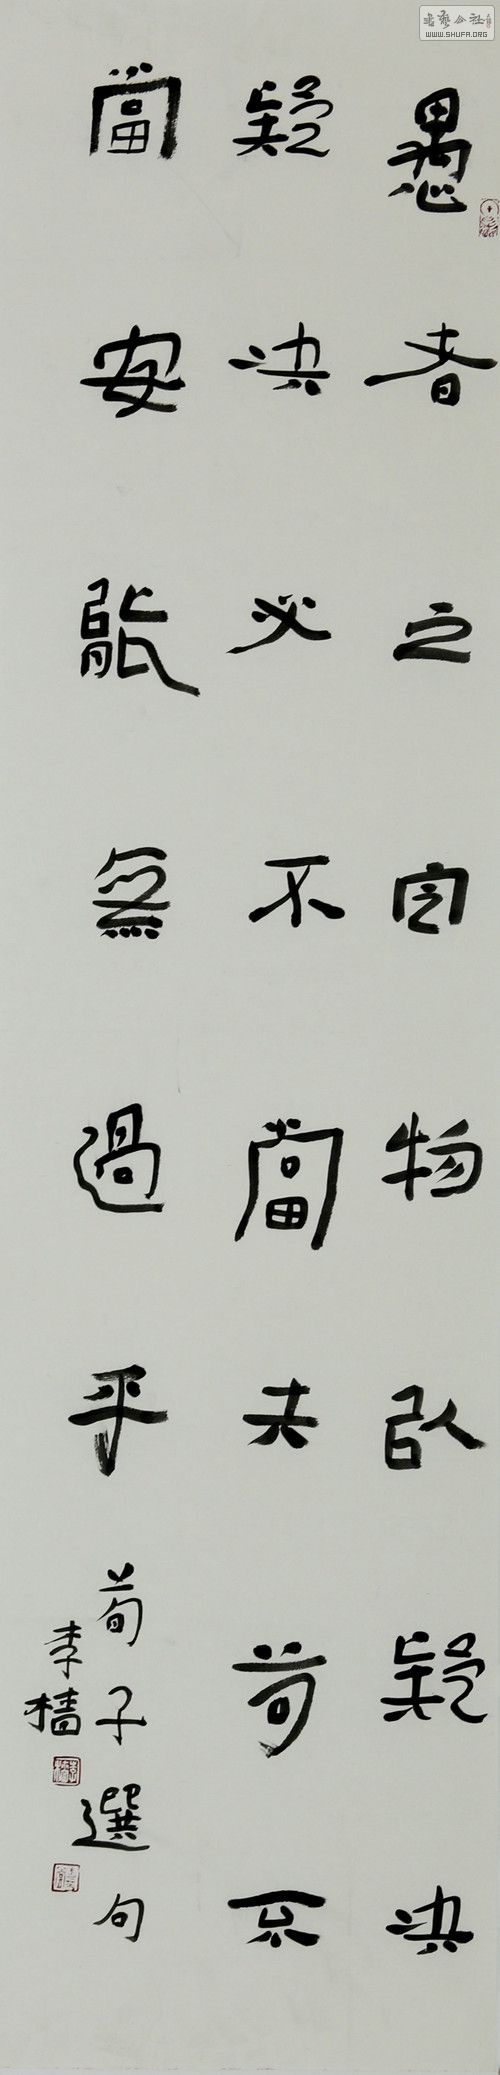 愚者之定物以疑決
疑決必不當夫苟不
當安能無過乎
荀子選句
李檣
書藝公社
WWW.SHUFA.ORG